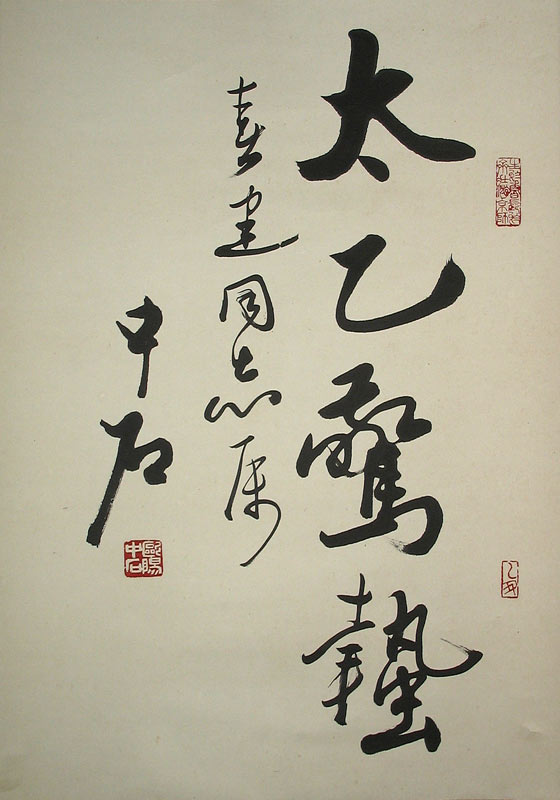 太乙驚蟄
喜建同志属
中石
歐陽中石